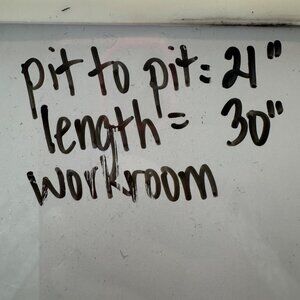 pit to pit = 21"
length = 30"
workroom